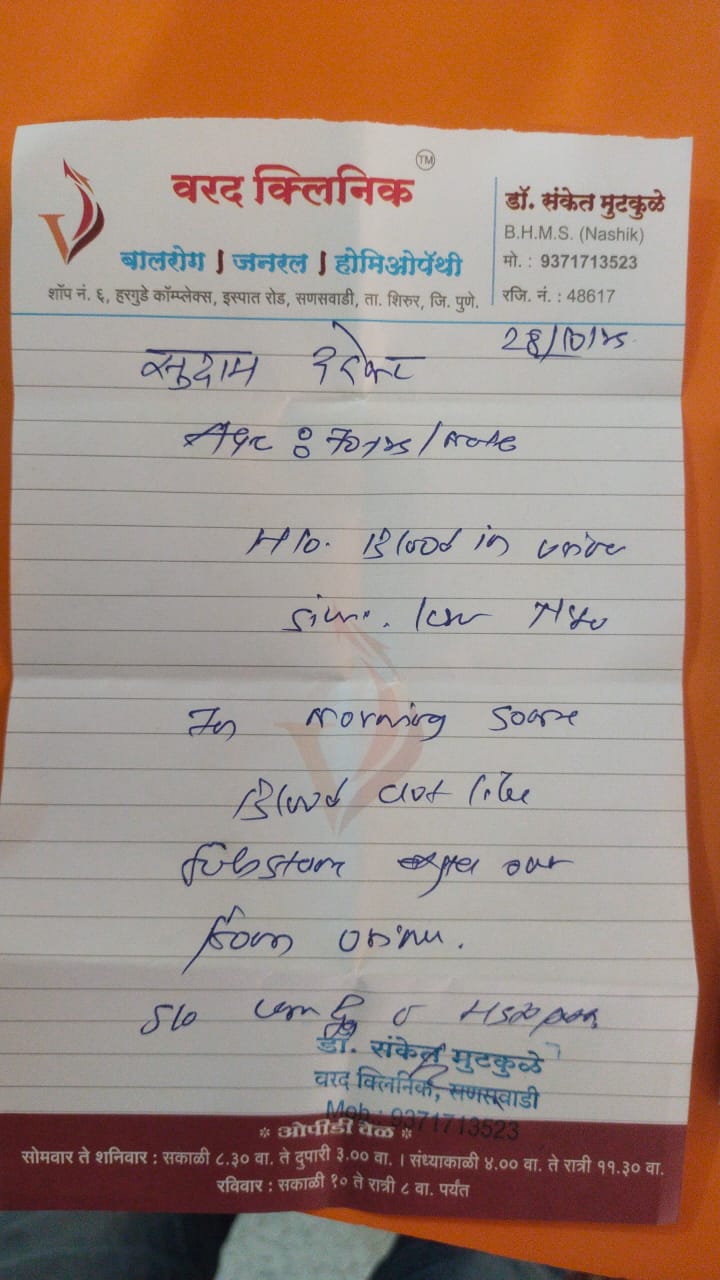 वरद क्लिनिक TM
बालरोग | जनरल | होमिओपॅथी
शॉप नं. ६, हरगुडे कॉम्प्लेक्स, इस्पात रोड, सणसवाडी, ता. शिरुर, जि. पुणे.
डॉ. संकेत मुटकुळे
B.H.M.S. (Nashik)
मो. : 9371713523
रजि. नं. : 48617
सुदाम
Age : 70 yrs / male
H/o. Blood in urine
since
In morning some
Blood clot like
out
from urine.
डॉ. संकेत मुटकुळे
वरद क्लिनिक, सणसवाडी
Mob.: 9371713523
* ओपीडी वेळ *
सोमवार ते शनिवार : सकाळी ८.३० वा. ते दुपारी ३.०० वा. । संध्याकाळी ४.०० वा. ते रात्री ११.३० वा.
रविवार : सकाळी १० ते रात्री ८ वा. पर्यंत